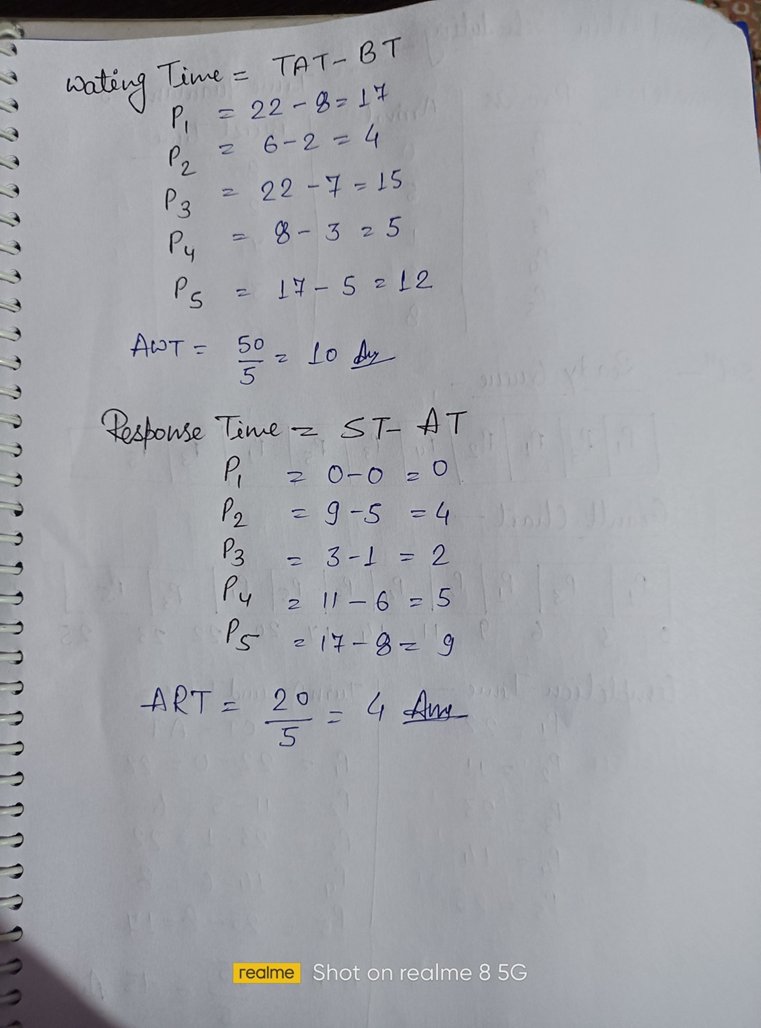 Wating Time = TAT - BT
P1 = 22 - 8 = 17
P2 = 6 - 2 = 4
P3 = 22 - 7 = 15
P4 = 8 - 3 = 5
P5 = 17 - 5 = 12
AWT = 50/5 = 10 Ans
Response Time = ST - AT
P1 = 0 - 0 = 0
P2 = 9 - 5 = 4
P3 = 3 - 1 = 2
P4 = 11 - 6 = 5
P5 = 17 - 8 = 9
ART = 20/5 = 4 Ans
realme Shot on realme 8 5G